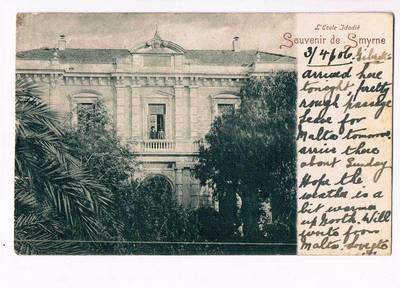 L'Ecole Idadié
Souvenir de Smyrne
3/4/06.
arrived here
tonight pretty
rough passage
Leave for
Malta tomorrow
arrive there
about Sunday
Hope the
weather is a
bit warmer
up North. Will
write from
Malta.